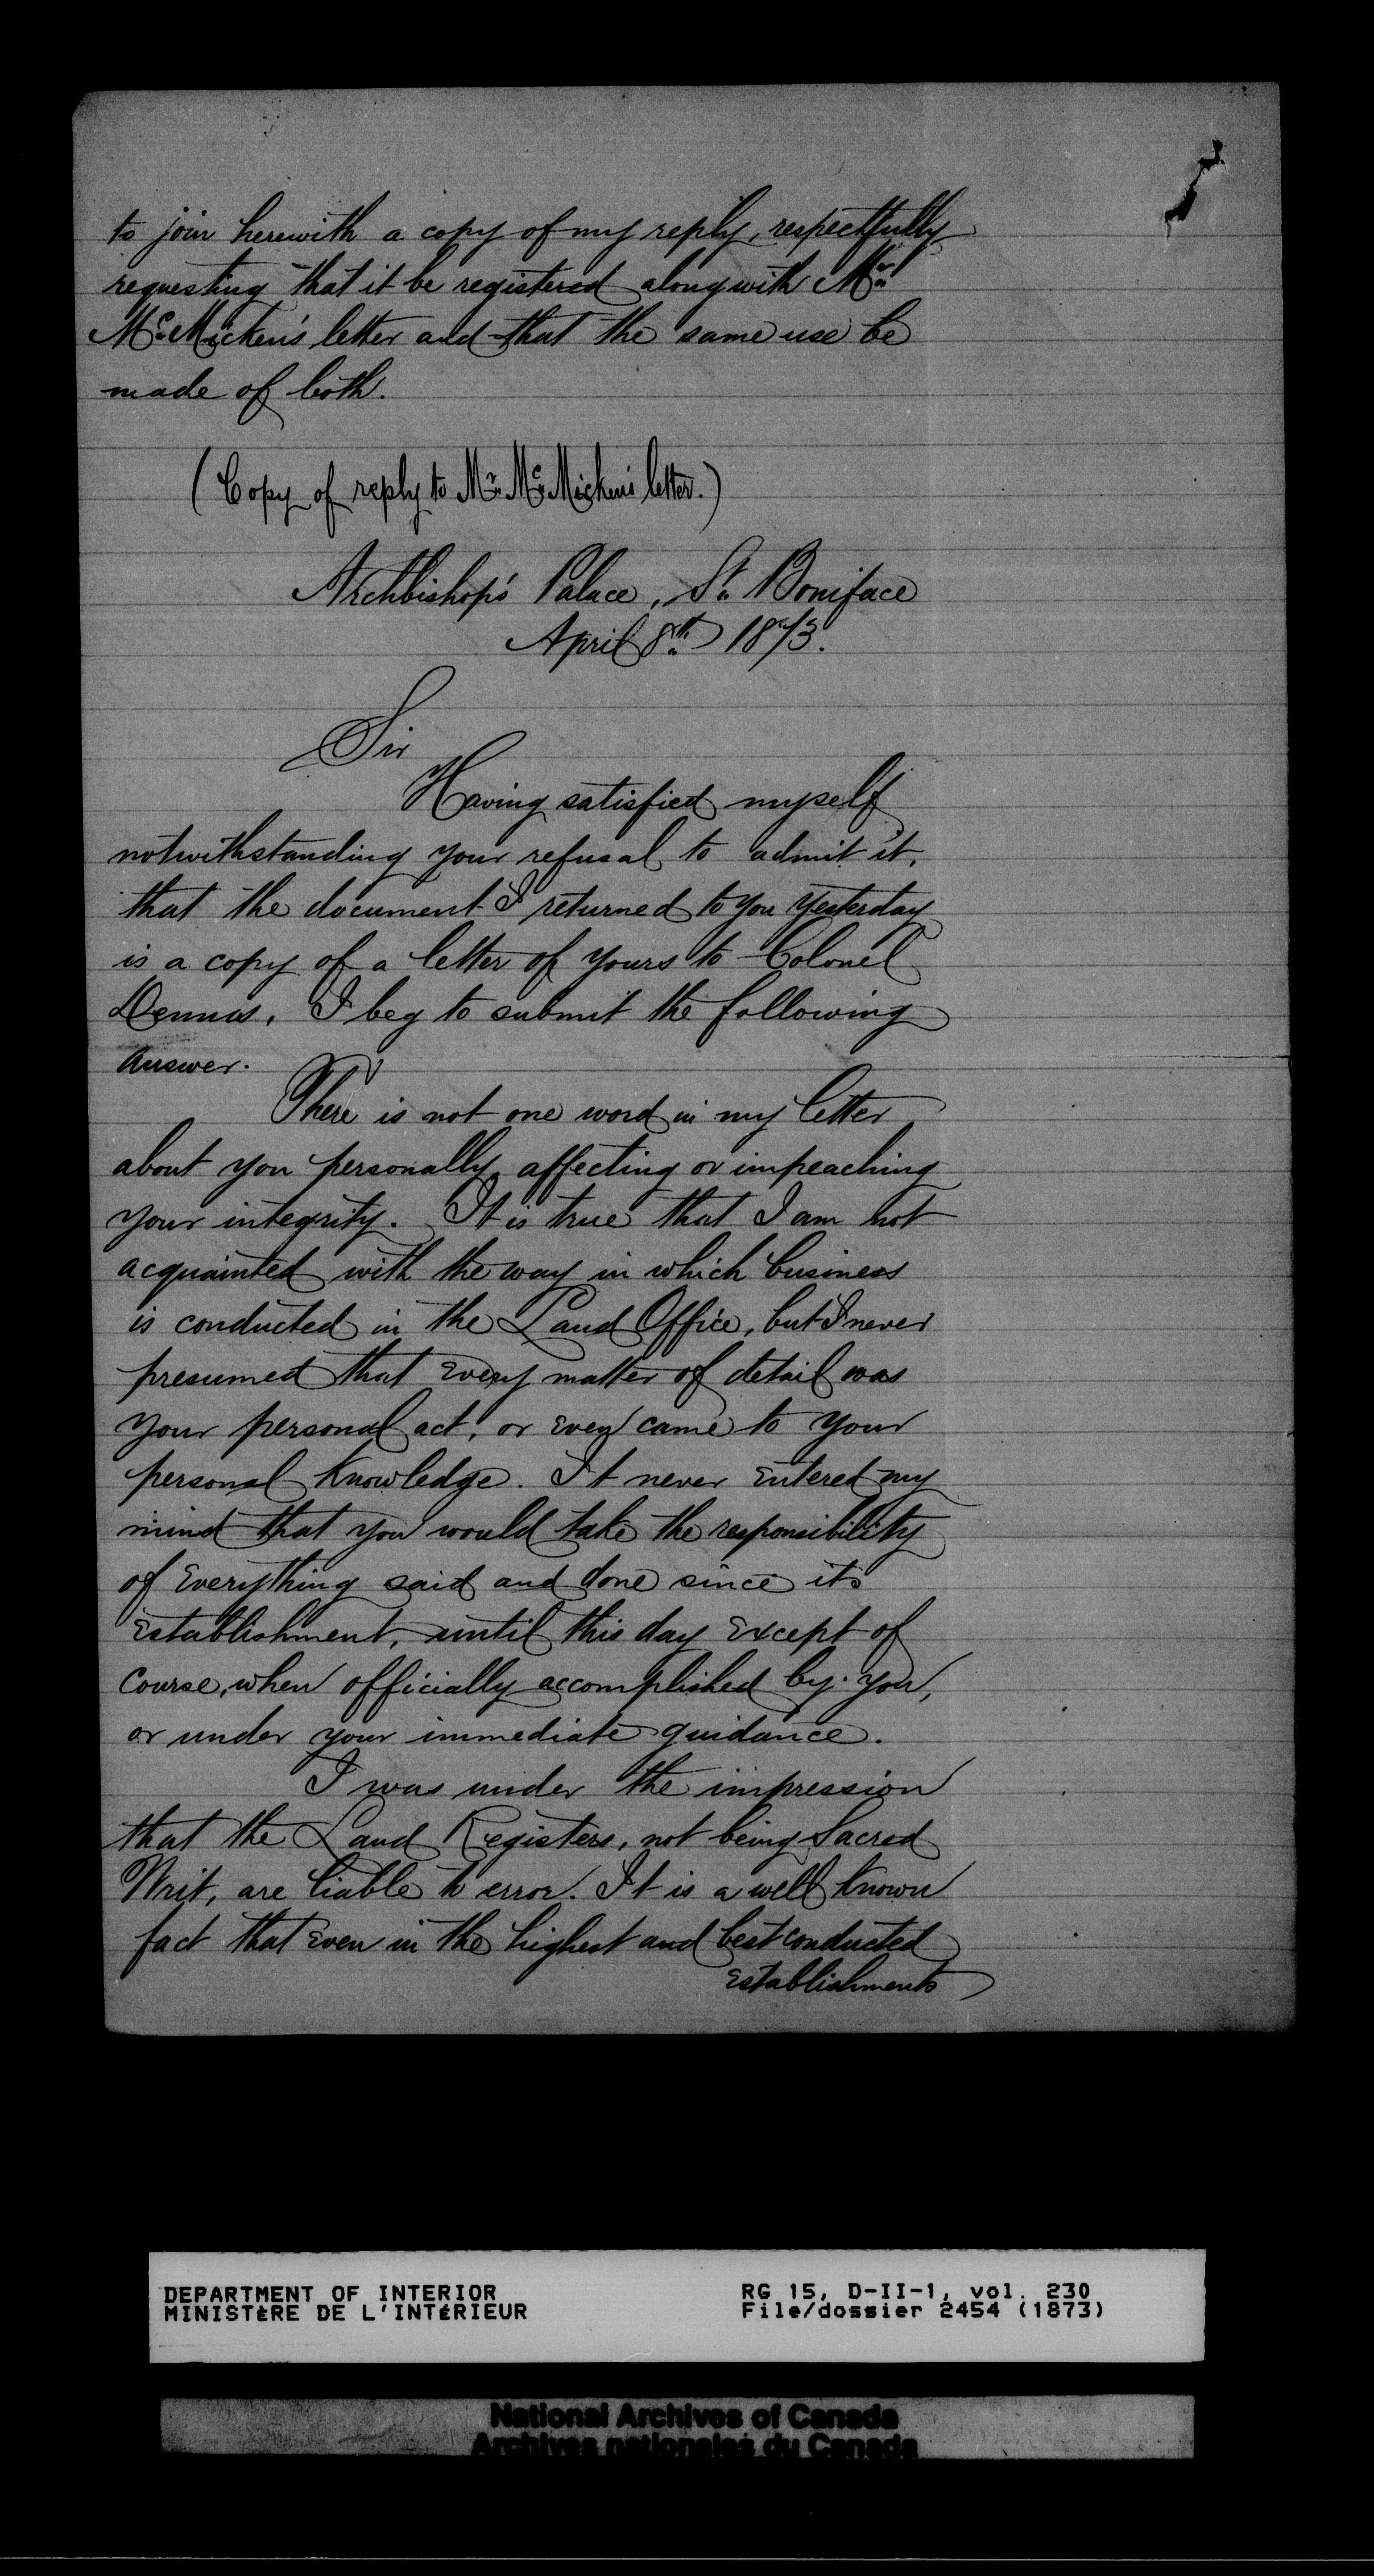 to join herewith a copy of my reply, respectfully
requesting that it be registered along with Mr.
McMicken's letter and that the same use be
made of both.
(Copy of reply to Mr. McMicken's letter.)
Archbishop's Palace, St. Boniface
April 8th 1873.
Sir
Having satisfied myself
notwithstanding your refusal to admit it,
that the document I returned to you yesterday
is a copy of a letter of yours to Colonel
Dennis, I beg to submit the following
answer.
There is not one word in my letter
about you personally affecting or impeaching
your integrity. It is true that I am not
acquainted with the way in which business
is conducted in the Land Office, but I never
presumed that every matter of detail was
your personal act, or even came to your
personal knowledge. It never entered my
mind that you would take the responsibility
of everything said and done since its
establishment, until this day except of
course, when officially accomplished by you,
or under your immediate guidance.
I was under the impression
that the Land Registers, not being Sacred
Writ, are liable to error. It is a well known
fact that even in the highest and best conducted
establishments
DEPARTMENT OF INTERIOR
MINISTÈRE DE L'INTÉRIEUR
RG 15, D-II-1, vol. 230
File/dossier 2454 (1873)
National Archives of Canada
Archives nationales du Canada